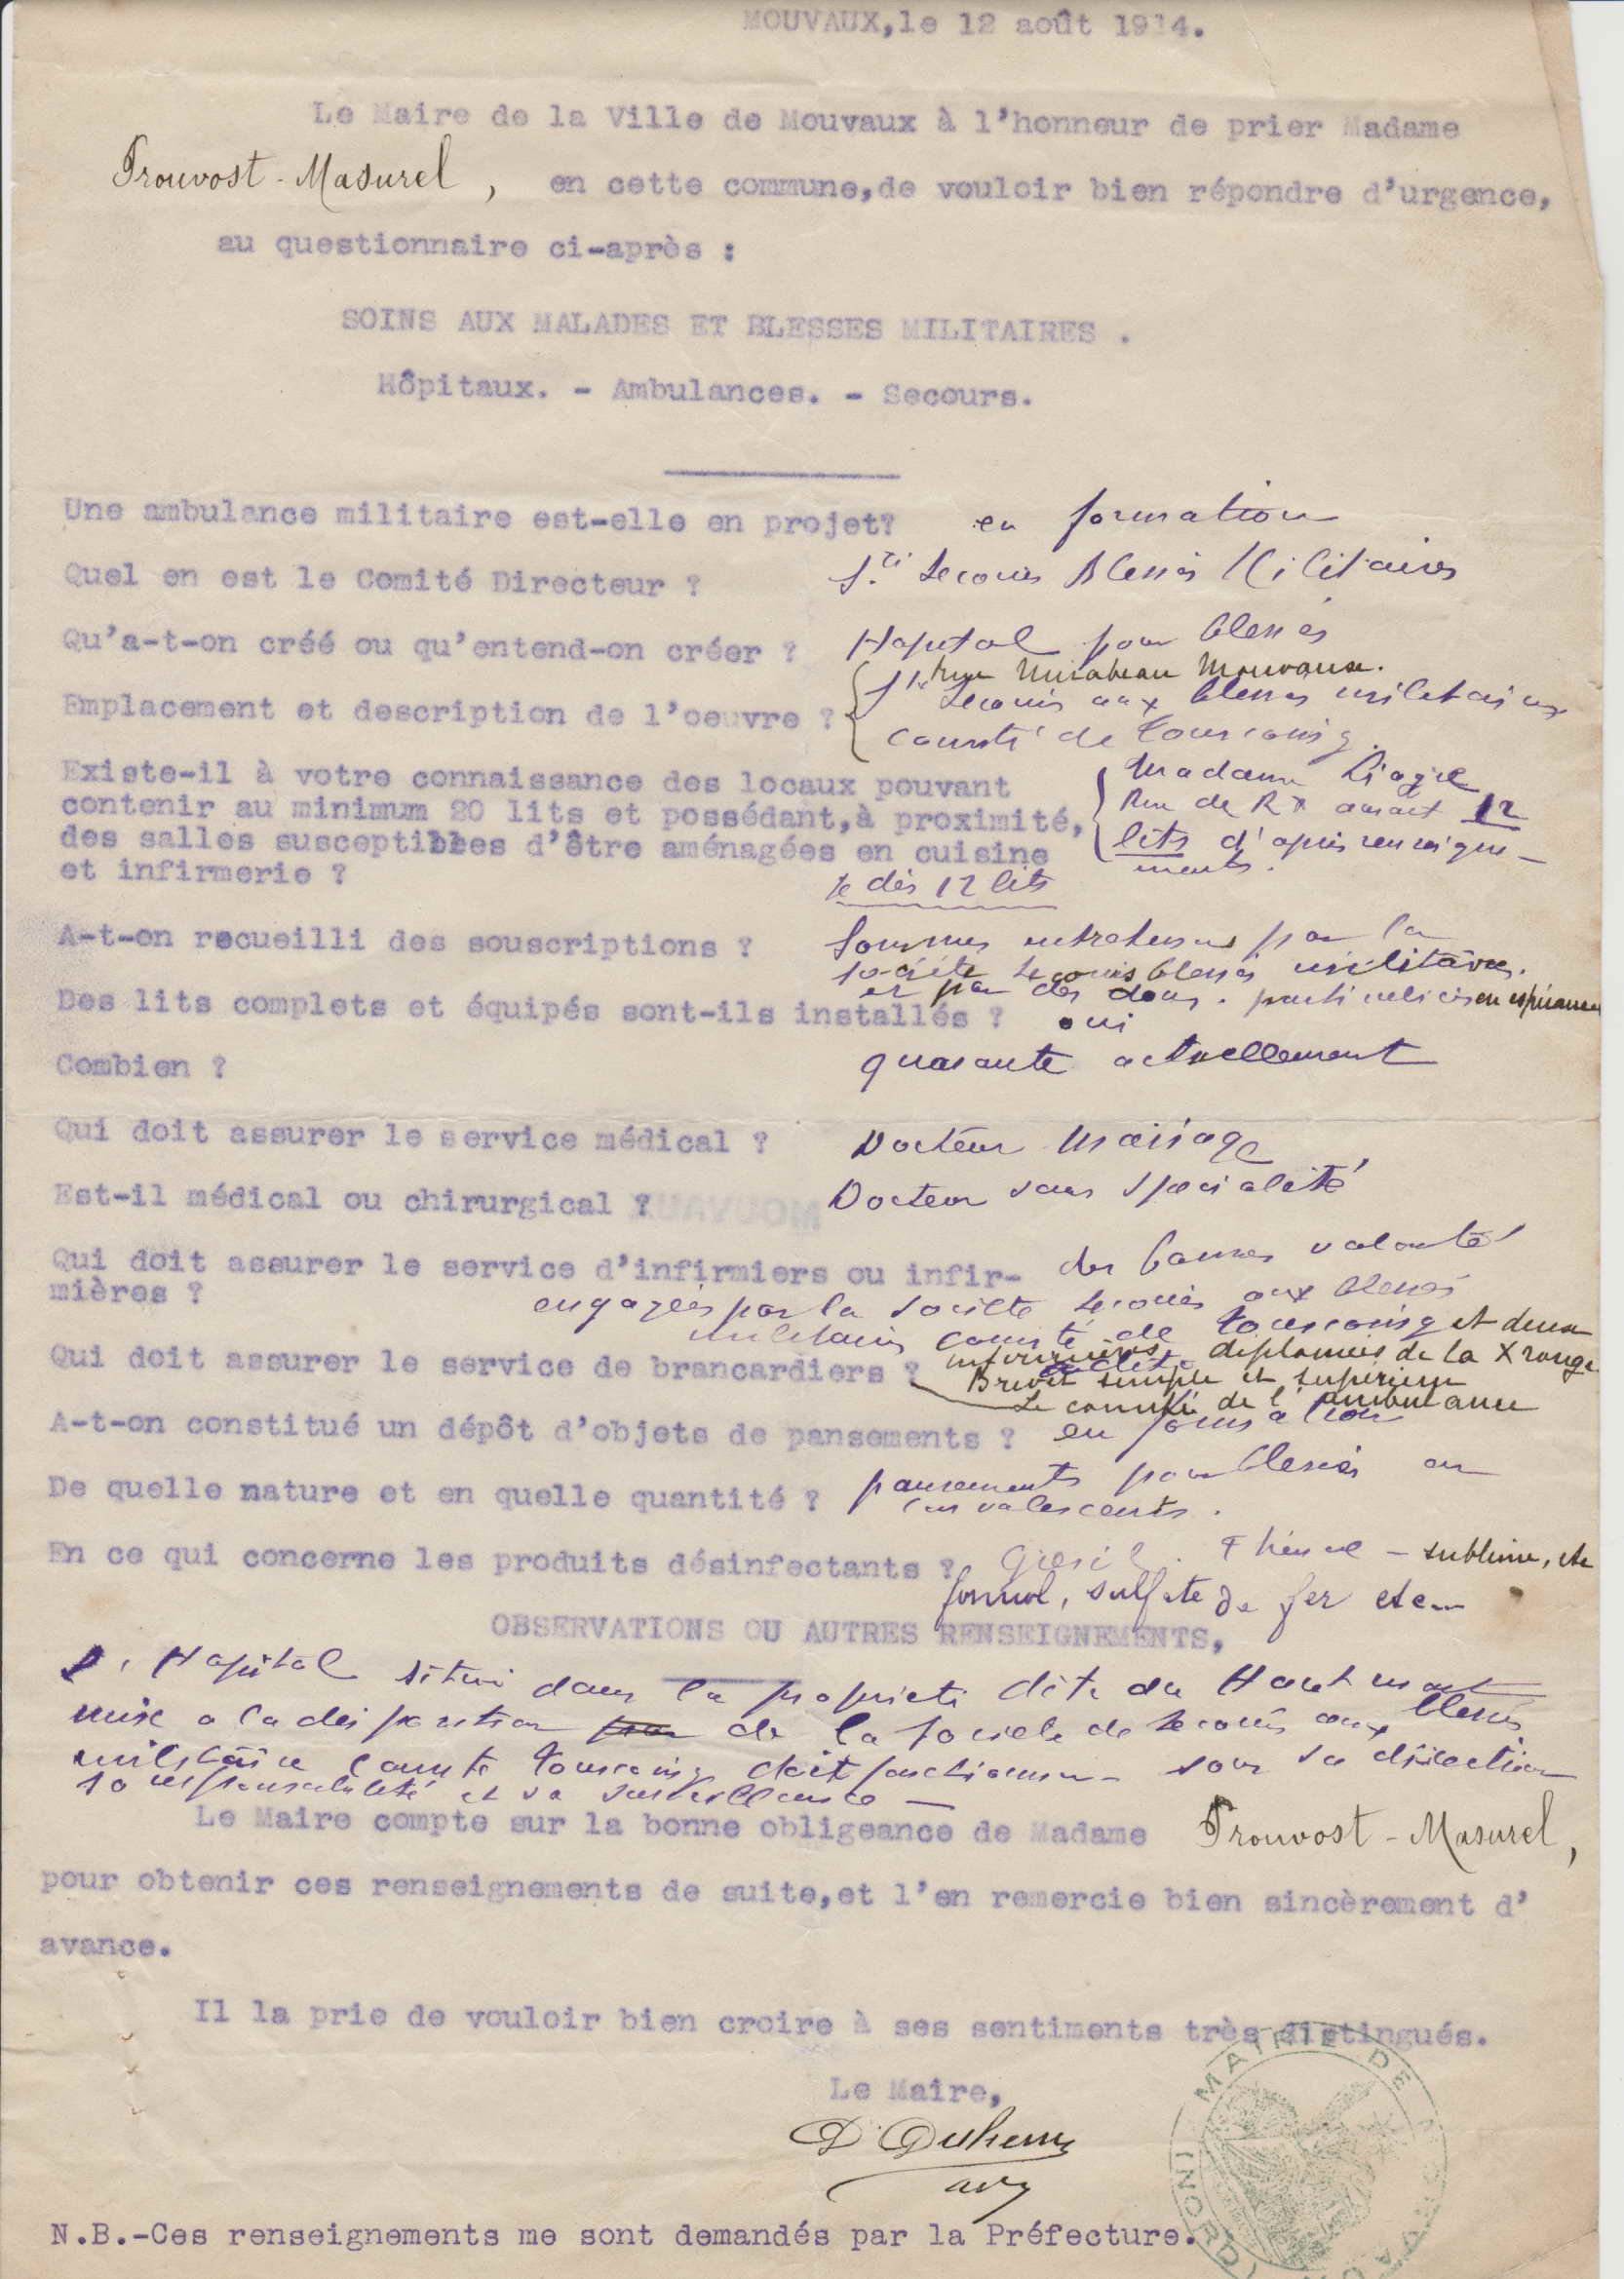 MOUVAUX,le 12 août 1914.
Le Maire de la Ville de Mouvaux à l'honneur de prier Madame
Prouvost - Masurel, en cette commune,de vouloir bien répondre d'urgence,
au questionnaire ci-après :
SOINS AUX MALADES ET BLESSES MILITAIRES .
Hôpitaux. - Ambulances. - Secours.
Une ambulance militaire est-elle en projet? en formation
Quel en est le Comité Directeur ? Sté Secours Blessés Militaires
Qu'a-t-on créé ou qu'entend-on créer ? Hopital pour blessés
rue Mirabeau Mouvaux.
Emplacement et description de l'oeuvre ? Sté Secours aux blessés militaires
comité de Tourcoing.
Existe-il à votre connaissance des locaux pouvant
contenir au minimum 20 lits et possédant,à proximité,
des salles susceptibles d'être aménagées en cuisine
et infirmerie ?
Madame
Rue de Rx aurait 12
lits d'après renseigne-
ments.
12 lits
A-t-on recueilli des souscriptions ? Sommes entretenus par la
société secours blessés militaires.
et par des dons. particuliers en espérance
Des lits complets et équipés sont-ils installés ? oui
Combien ? quarante actuellement
Qui doit assurer le service médical ? Docteur
Est-il médical ou chirurgical ? Docteur sans spécialité
MOUVAUX
Qui doit assurer le service d'infirmiers ou infir- des bonnes volontés
mières ?
engagées par la société secours aux blessés
militaires comité de Tourcoing et deux
infirmières diplomées de la X rouge
Brevet simple et supérieur
Qui doit assurer le service de brancardiers ? Le comité de l'ambulance
A-t-on constitué un dépôt d'objets de pansements ? en formation
De quelle nature et en quelle quantité ? pansements pour blessés ou
convalescents.
En ce qui concerne les produits désinfectants ? Crésil. Phénol - sublimé, etc
formol, sulfate de fer etc
OBSERVATIONS OU AUTRES RENSEIGNEMENTS,
L'Hopital situé dans la propriété dite du Haut mont
mise a la disposition par de la Société de secours aux blessés
militaire comité Tourcoing doit fonctionner sous sa direction
sa responsabilité et sa surveillance -
Le Maire compte sur la bonne obligeance de Madame Prouvost - Masurel,
pour obtenir ces renseignements de suite,et l'en remercie bien sincèrement d'
avance.
Il la prie de vouloir bien croire à ses sentiments très distingués.
Le Maire,
MAIRIE DE
N.B.-Ces renseignements me sont demandés par la Préfecture.